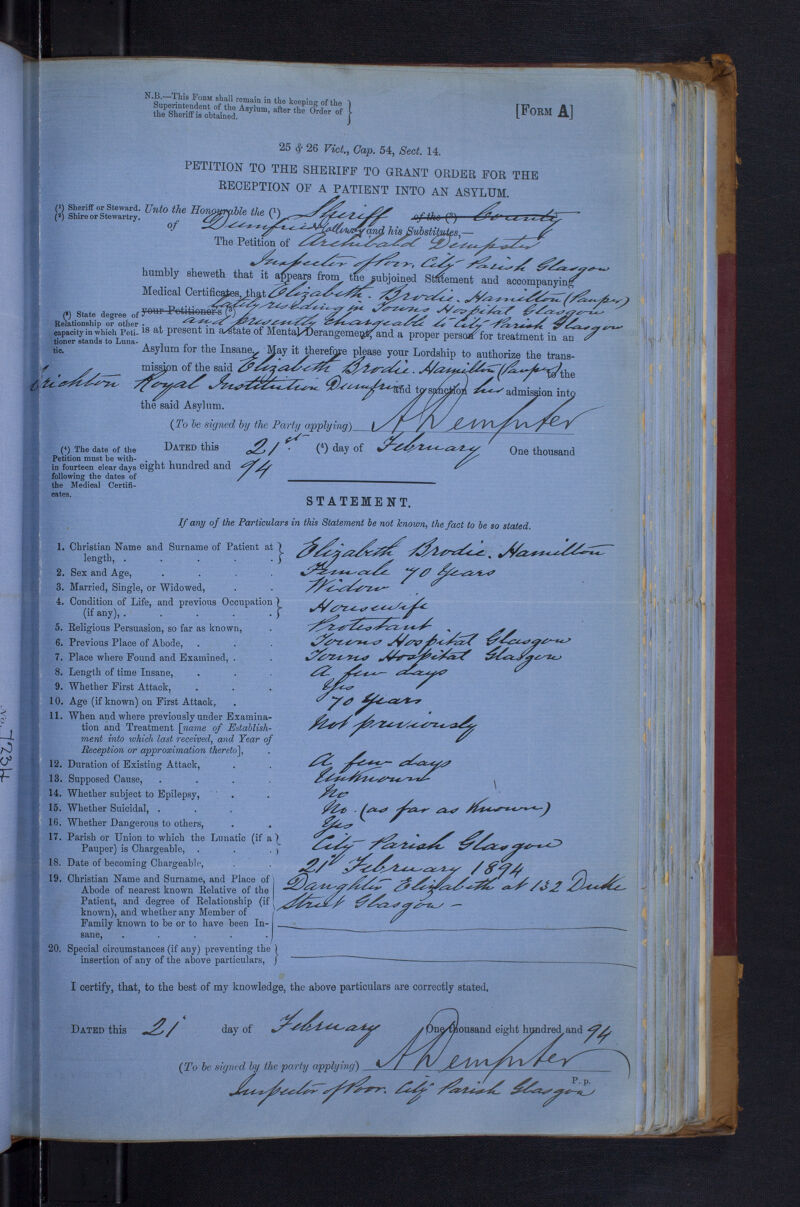 N.B.—This Form shall remain in the keeping of the
Superintendent of the Asylum, after the Order of
the Sheriff is obtained.
[Form A]
25 & 26 Vict., Cap. 54, Sect. 14.
PETITION TO THE SHERIFF TO GRANT ORDER FOR THE
RECEPTION OF A PATIENT INTO AN ASYLUM.
(1) Sheriff or Steward.
(2) Shire or Stewartry.
Unto the Honourable the (1) Sheriff of the (2) County
of Dumfries & Galloway and his Substitutes,—
The Petition of Archibald Dempster
Inspector of Poor, City Parish Glasgow
humbly sheweth that it appears from the subjoined Statement and accompanying
Medical Certificates, that Elizabeth. Brodie. Hamilton (Pauper)
lately residing in Towns Hospital Glasgow
your Petitioner's (3)
and presently chargeable to City Parish Glasgow
(3) State degree of
Relationship or other
capacity in which Peti-
tioner stands to Luna-
tic.
is at present in a state of Mental Derangement, and a proper person for treatment in an
Asylum for the Insane, May it therefore please your Lordship to authorize the trans-
mission of the said Elizabeth Brodie. Hamilton (Pauper) to the
Crichton Royal Institution Dumfries and to sanction her admission into
the said Asylum.
(To be signed by the Party applying) A Dempster
(4) The date of the
Petition must be with-
in fourteen clear days
following the dates of
the Medical Certifi-
cates.
Dated this 21st. (4) day of February One thousand
eight hundred and 94
STATEMENT.
If any of the Particulars in this Statement be not known, the fact to be so stated.
1. Christian Name and Surname of Patient at length, . Elizabeth Brodie. Hamilton
2. Sex and Age, Female 70 Years
3. Married, Single, or Widowed, Widow
4. Condition of Life, and previous Occupation (if any), . Housewife
5. Religious Persuasion, so far as known, Protestant
6. Previous Place of Abode, Towns Hospital Glasgow
7. Place where Found and Examined, . Towns Hospital Glasgow
8. Length of time Insane, A few days
9. Whether First Attack, Yes
10. Age (if known) on First Attack, 70 Years
11. When and where previously under Examina-
tion and Treatment [name of Establish-
ment into which last received, and Year of
Reception or approximation thereto], Not previously
12. Duration of Existing Attack, A few days
13. Supposed Cause, Unknown
14. Whether subject to Epilepsy, No
15. Whether Suicidal, . No. (as far as Known)
16. Whether Dangerous to others, Yes
17. Parish or Union to which the Lunatic (if a
Pauper) is Chargeable, . City Parish Glasgow
18. Date of becoming Chargeable, 21st February 1894
19. Christian Name and Surname, and Place of
Abode of nearest known Relative of the
Patient, and degree of Relationship (if
known), and whether any Member of
Family known to be or to have been In-
sane,
Daughter Elizabeth at 132 Duke
Street Glasgow –
20. Special circumstances (if any) preventing the
insertion of any of the above particulars,
I certify, that, to the best of my knowledge, the above particulars are correctly stated,
Dated this 21st day of February One thousand eight hundred and 94
(To be signed by the party applying) A Dempster
P. p.
Inspector of Poor. City Parish Glasgow
No. 7234